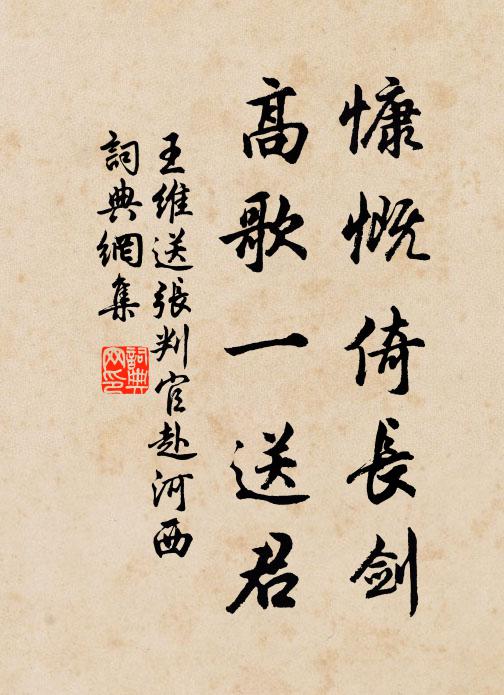 慷慨倚長劍
高歌一送君
王維送張判官赴河西
詞典網集
詞典网印